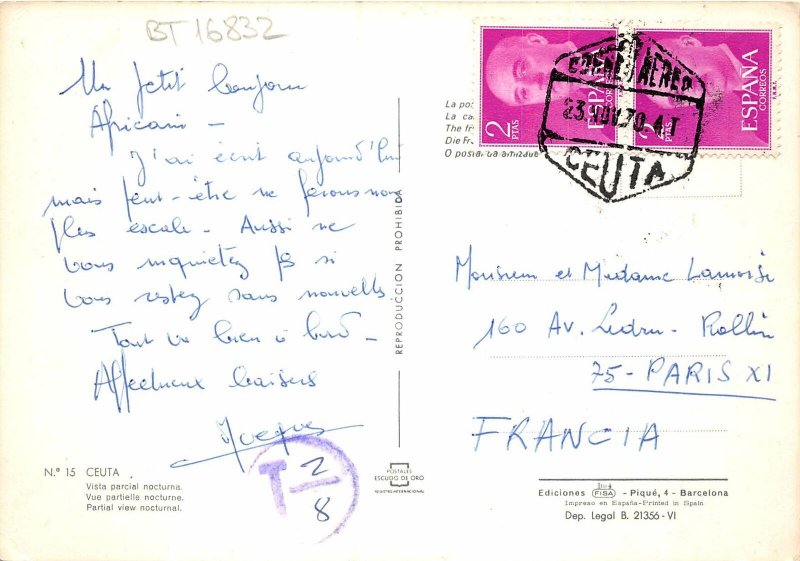 BT 16832
Un petit bonjour
Africain -
J'ai écrit aujourd'hui
mais peut-être ne ferons nous
plus escale - Aussi ne
vous inquiétez pas si
vous restez sans nouvelles
Tout va bien à bord -
Affectueux baisers
Jacques
T 2/8
Nº 15 CEUTA
Vista parcial nocturna.
Vue partielle nocturne.
Partial view nocturnal.
REPRODUCCION PROHIBIDA
POSTALES
ESCUDO DE ORO
REGISTRO INTERNACIONAL
La
La
The
Die
O postal
2
PTAS
ESPAÑA
CORREOS
F.N.M.T.
2
PTAS
ESPAÑA
CORREOS
F.N.M.T.
CORREO AEREO
23.NOV.70.4T
CEUTA
Monsieur et Madame
160 Av. Ledru-Rollin
75-PARIS XI
FRANCIA
Ediciones FISA - Piqué, 4 - Barcelona
Impreso en España-Printed in Spain
Dep. Legal B. 21356-VI